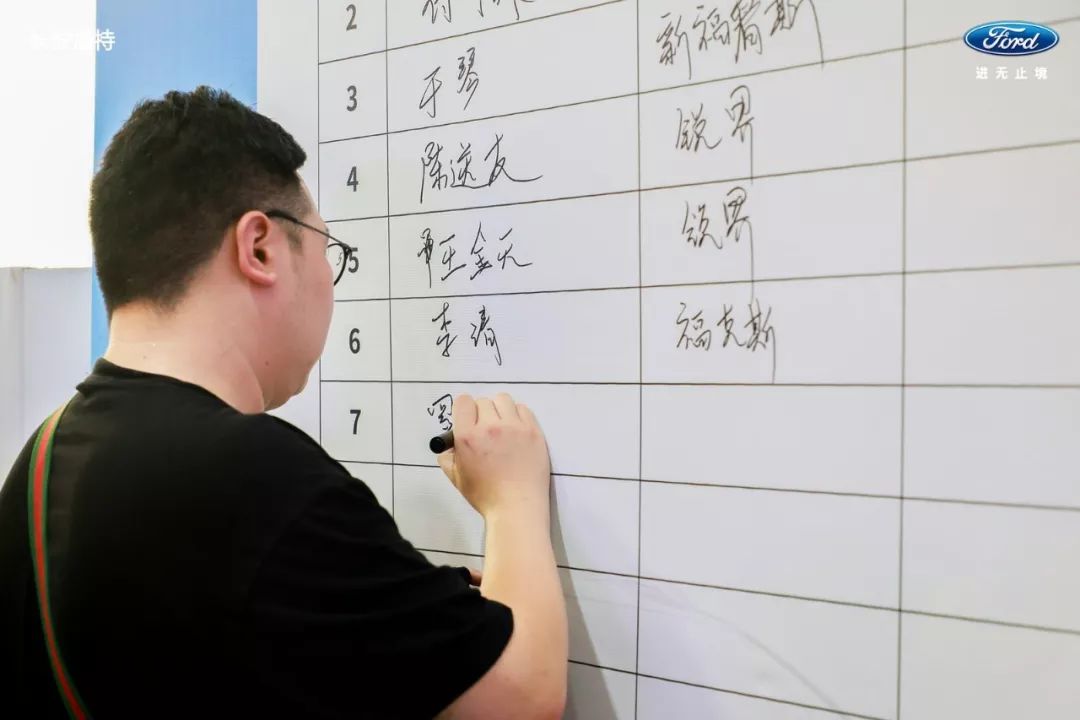 长安福特
Ford
进无止境
2 新福睿斯
3 于琴 锐界
4 陈逆友 锐界
5 王金天
6 李清 福克斯
7